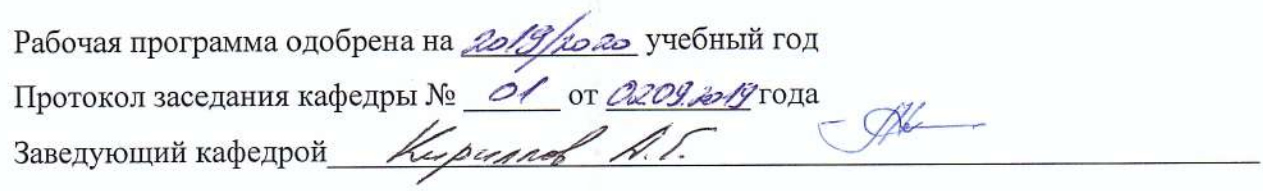 Рабочая программа одобрена на 2019/2020 учебный год
Протокол заседания кафедры № 01 от 02.09.2019 года
Заведующий кафедрой Кириллов А.Г.